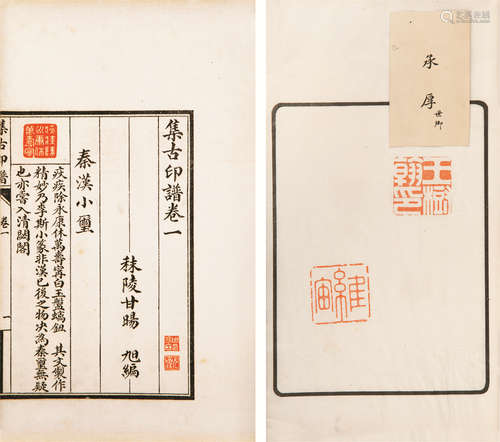 集古印譜卷一
秣陵甘暘 旭編
秦漢小璽
疢疾除永康休萬壽寧白玉盤螭鈕 其文製作
精妙乃李斯小篆非漢已後之物决為秦璽無疑
也亦嘗入清閟閣
集古印譜
卷一
一
承厚
世卿
維寅